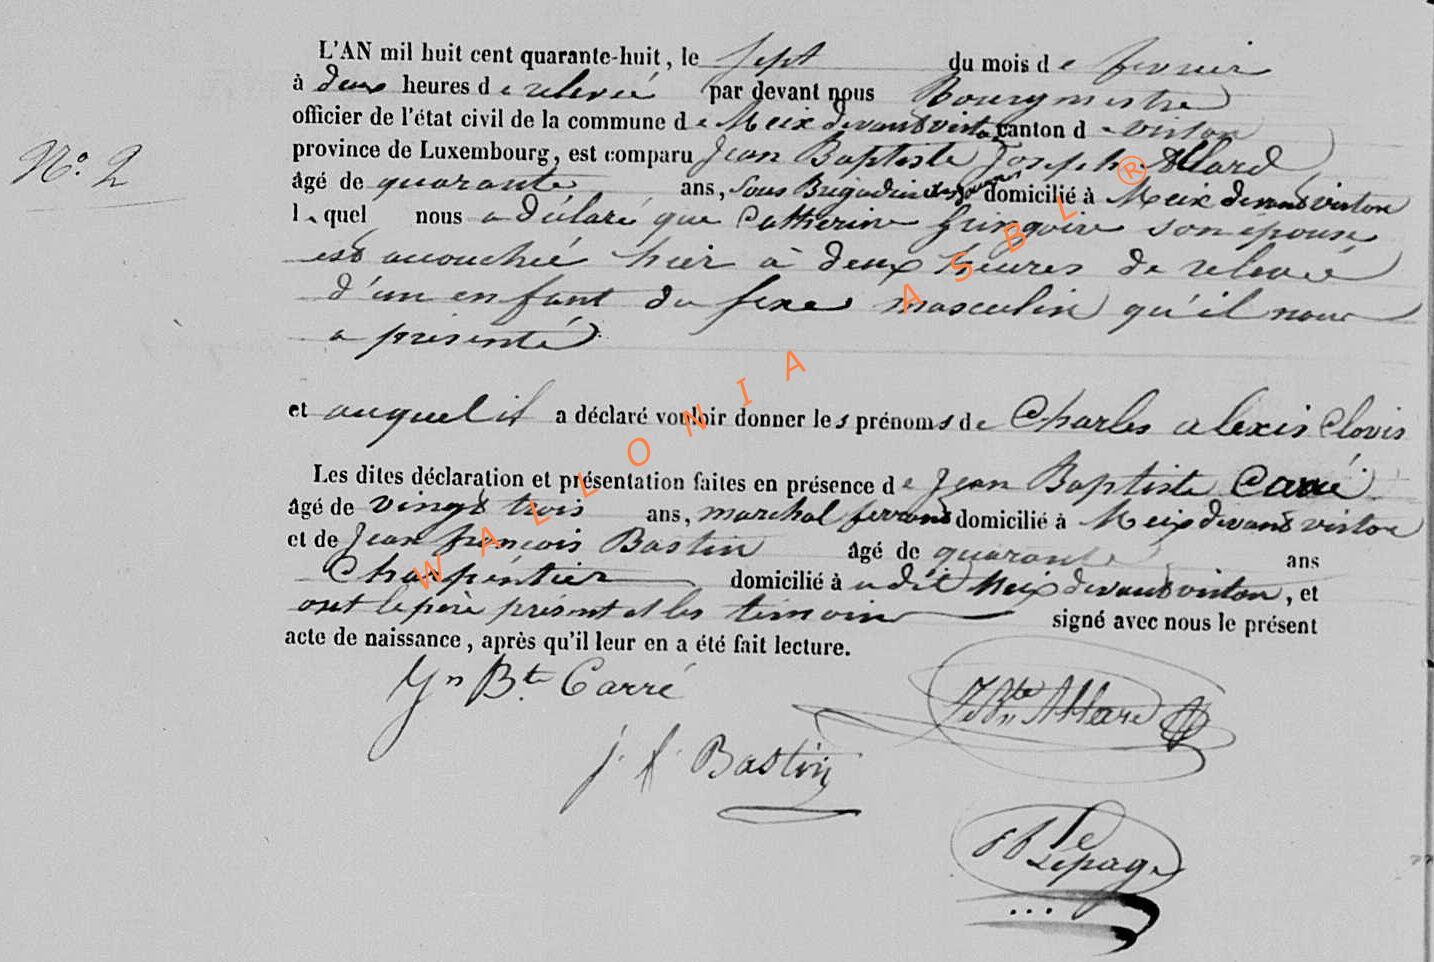 L'AN mil huit cent quarante-huit, le sept du mois de fevrier
à deux heures de relevée par devant nous Bourgmestre
officier de l'état civil de la commune de Meix devant virton canton de virton
N° 2
province de Luxembourg, est comparu Jean Baptiste Joseph Allard
âgé de quarante ans, Sous Brigadier des douanes domicilié à Meix devant virton
lequel nous a déclaré que Catherine Gringoire son épouse
est accouchée hier à deux heures de relevée
d'un enfant du sexe masculin qu'il nous
a présenté
et auquel il a déclaré vouloir donner les prénoms de Charles alexis Clovis
Les dites déclaration et présentation faites en présence de Jean Baptiste Carré
âgé de vingt trois ans, marchal ferrant domicilié à Meix devant virton
et de Jean françois Bastin âgé de quarante ans
Charpentier domicilié à u dit Meix devant virton, et
ont le père présent et les témoins signé avec nous le présent
acte de naissance, après qu'il leur en a été fait lecture.
Jn Bte Carré
JBte Allard
j. f. Bastin
Lepage
WALLONIA ASBL ®